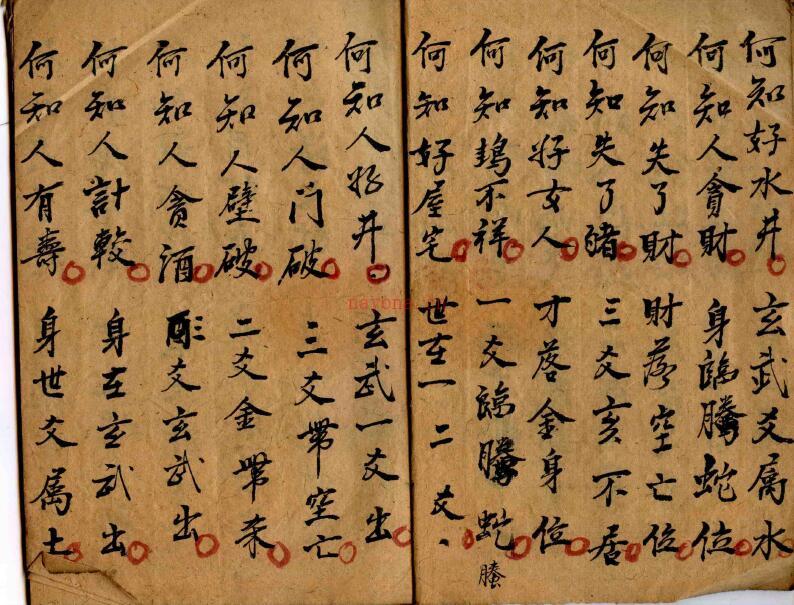 何知好水井 玄武爻属水
何知人貪財 身臨螣蛇位
何知失了財 財落空亡位
何知失了豬 三爻亥不居
何知好女人 才落金身位
何知鵲不祥 一爻臨螣蛇
螣
何知好屋宅 世在一二爻
何知人好井 玄武一爻出
何知人門破 三爻帶空亡
何知人壁破 二爻金帶杀
何知人貪酒 爻玄武出
何知人計較 身在玄武出
何知人有壽 身世爻属土